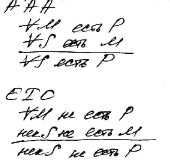 ААА
∀M есть P
∀S есть M
∀S есть P
EIO
∀M не есть P
некS не есть M
некS не есть P